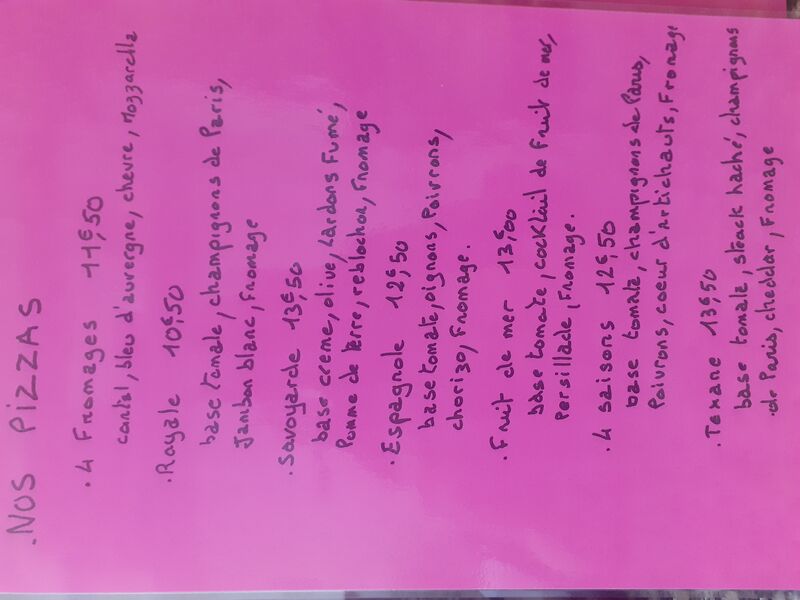 .NOS PIZZAS
. 4 Fromages 11€,50
cantal, bleu d'auvergne, chevre, mozzarella
. Royale 10€,50
base tomate, champignons de Paris,
Jambon blanc, Fromage
. Savoyarde 13€,50
base creme, olive, Lardons Fumé,
Pomme de terre, reblochon, Fromage
. Espagnole 12€,50
base tomate, oignons, Poivrons,
chorizo, Fromage.
. Fruit de mer 13€,00
base tomate, cocktail de Fruit de mer,
Persillade, Fromage.
. 4 saisons 12€,50
base tomate, champignons de Paris,
Poivrons, coeur d'artichauts, Fromage
. Texane 13€,50
base tomate, steack haché, champignons
de Paris, cheddar, Fromage